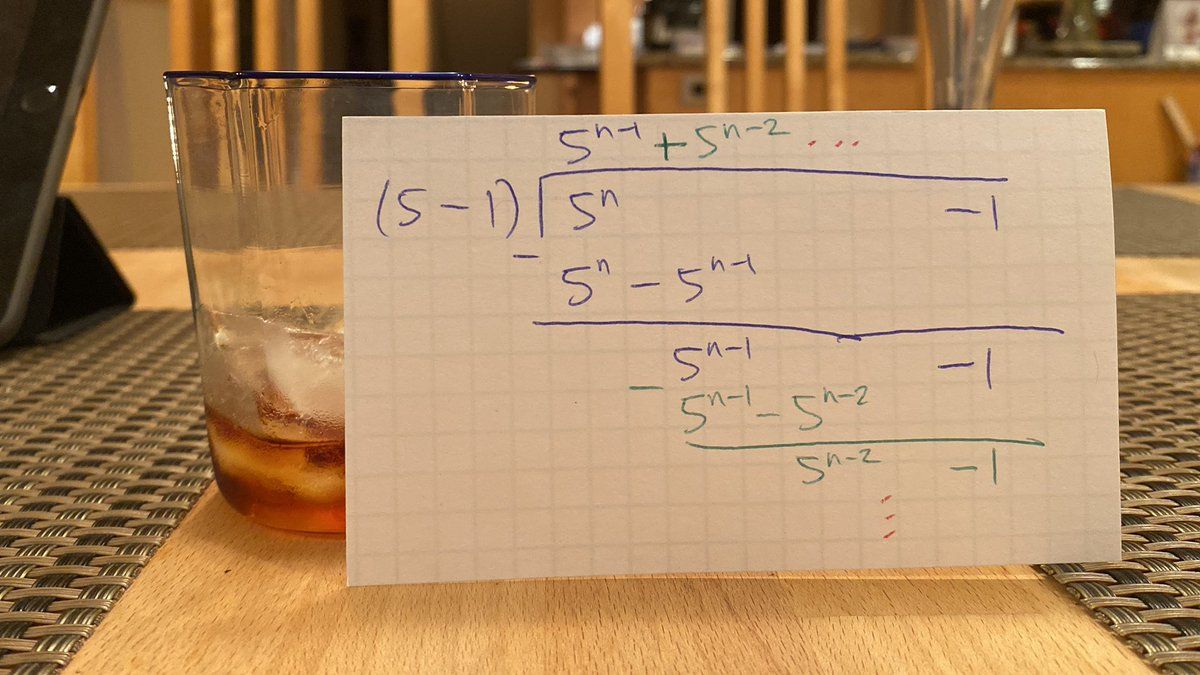 5ⁿ⁻¹ + 5ⁿ⁻² ...
(5 - 1) 5ⁿ - 1
- 5ⁿ - 5ⁿ⁻¹
5ⁿ⁻¹ - 1
- 5ⁿ⁻¹ - 5ⁿ⁻²
5ⁿ⁻² - 1
⋮